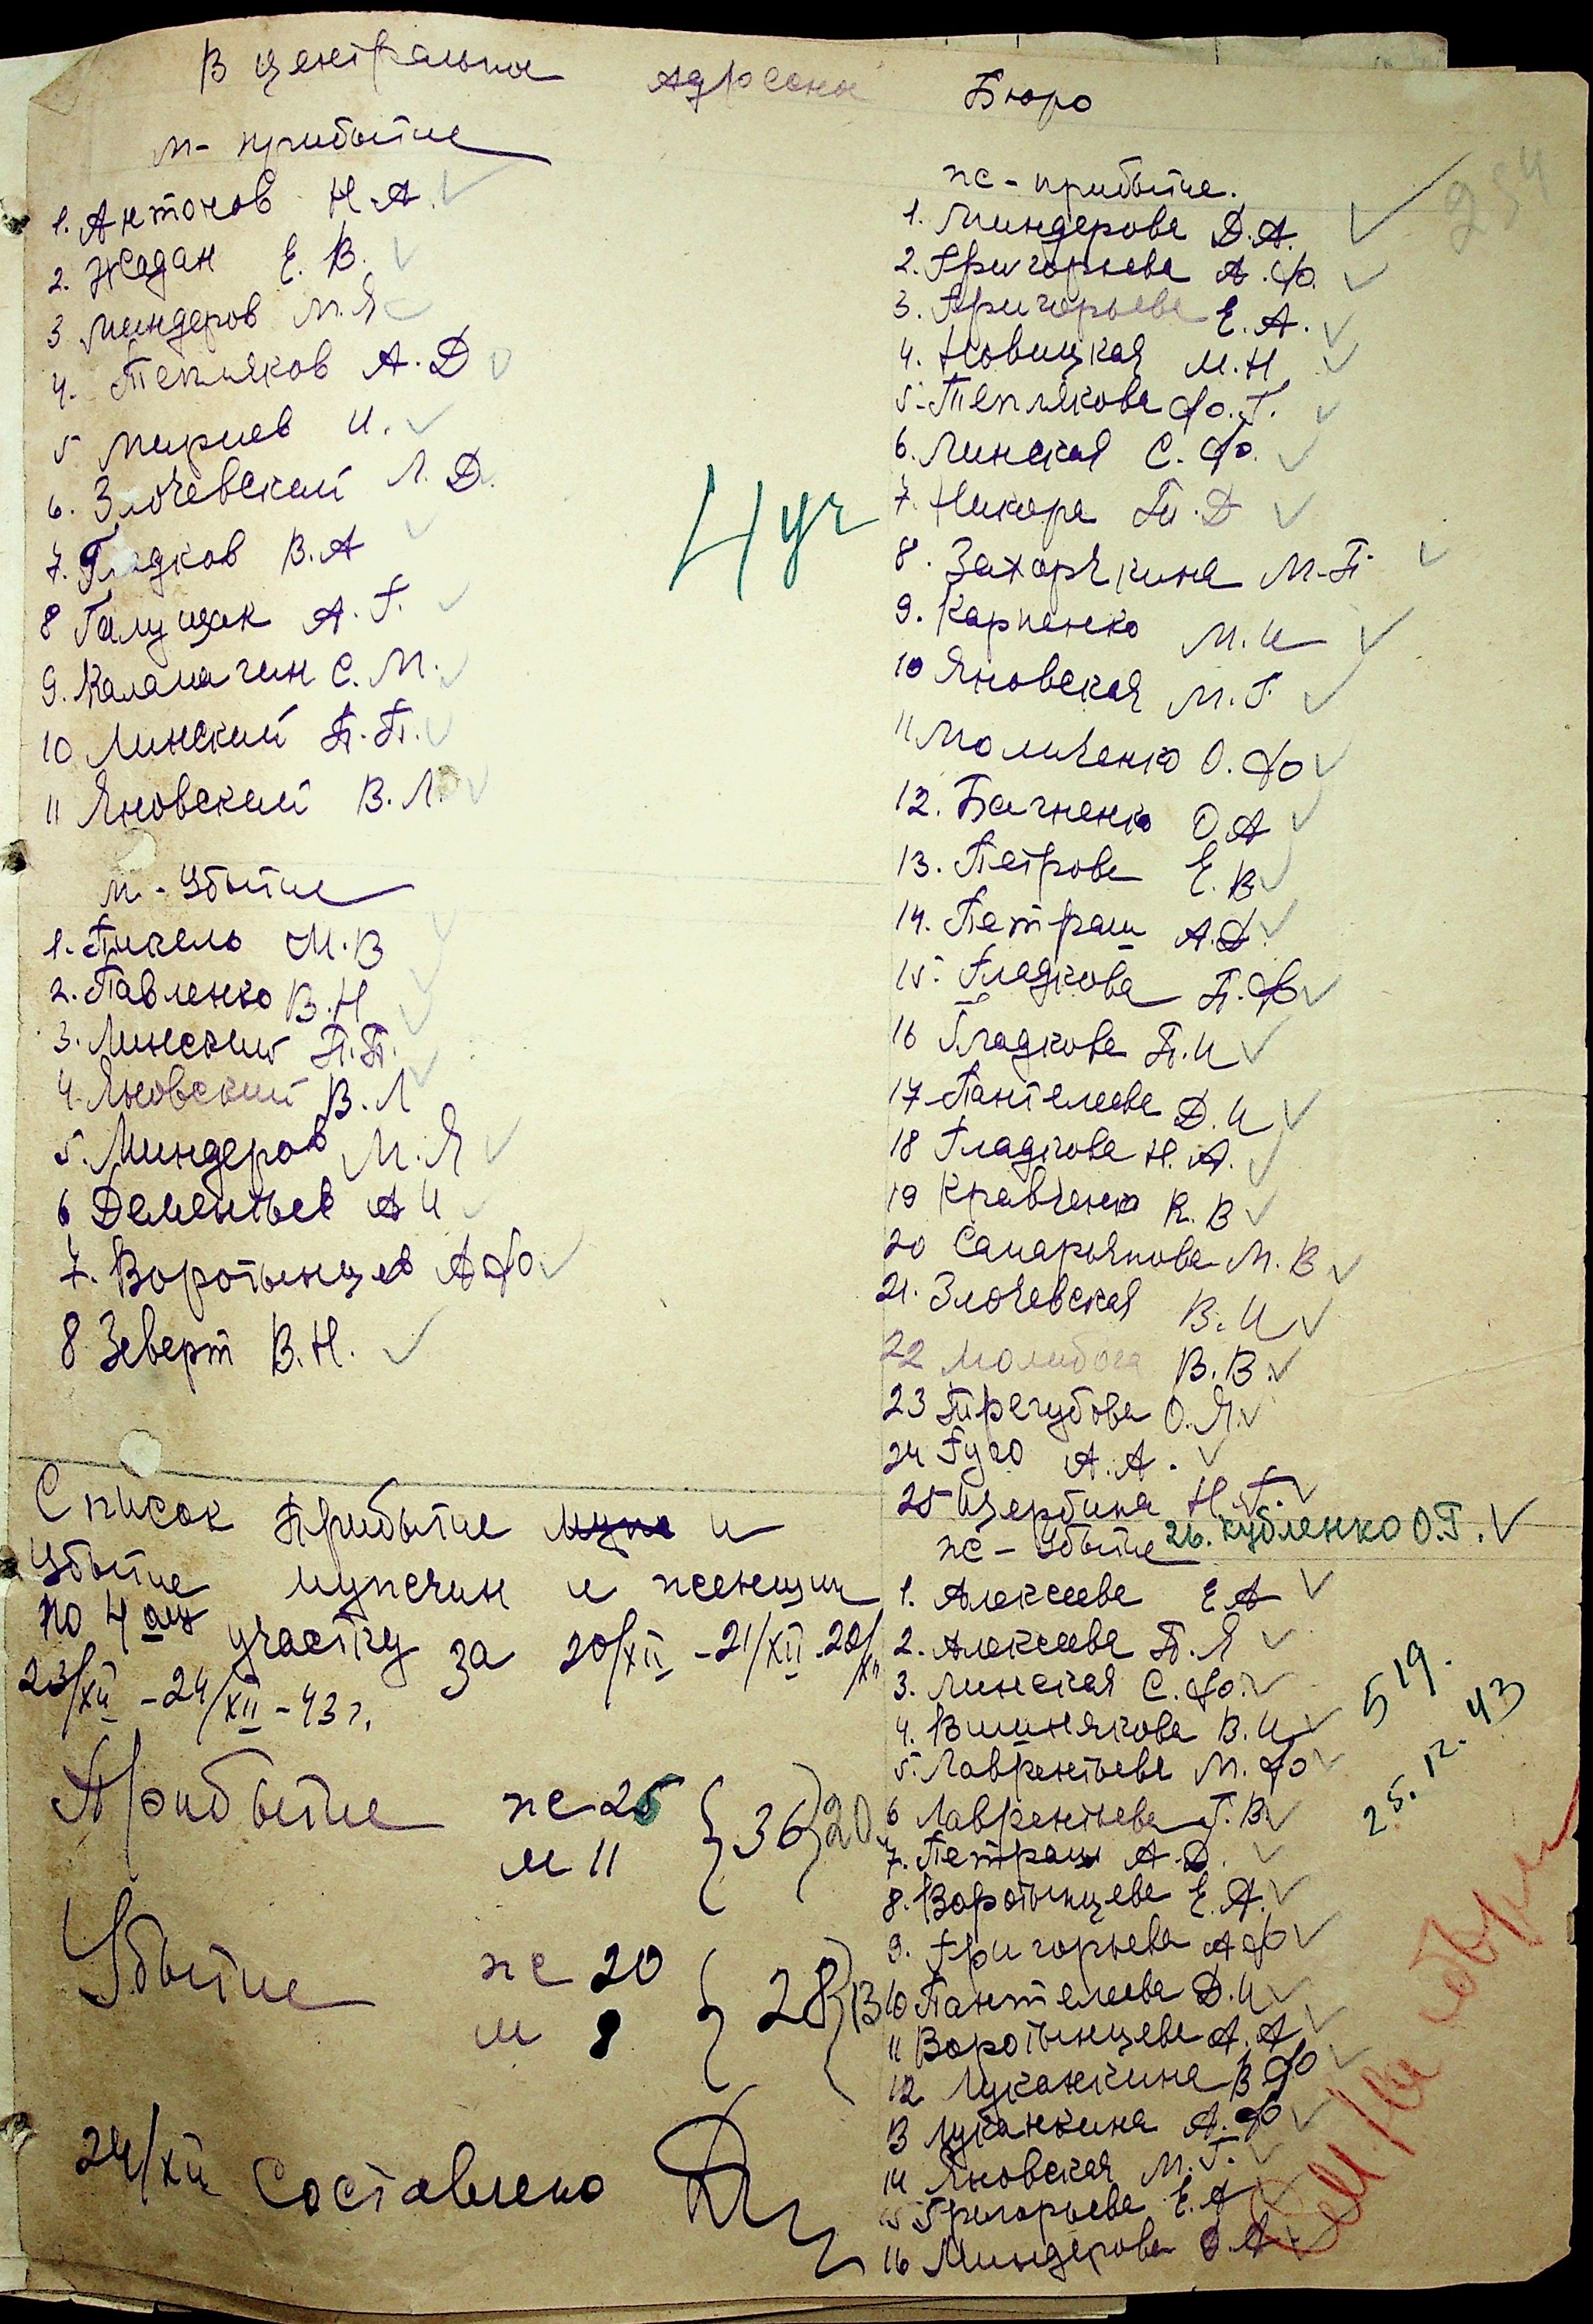 В центральное адресное Бюро
м - прибытие
1. Антонов Н.А.
2. Жадан Е. В.
3 Миндеров М.Я
4. Тепляков А.Д
5 Мирцев И.
6. Злочевский Л.Д.
7. Гладков В.А
8 Галущак А.Г.
9. Каламагин С.М.
10 Линский П.П.
11 Яновский В.Л.
м - Убытие
1. Пикель М.В
2. Павленко В.Н
3. Линский П.П.
4. Яновский В.Л
5. Миндеров М.Я
6 Дементьев А И
7. Воротынцев А Ф
8 Зеверт В.Н.
4 уч
Список Прибытие муж и
Убытие мужчин и женщин
по 4 ом участку за 20/XII - 21/XII - 22/XII
23/XII - 24/XII - 43 г.
Прибытие ж 25
м 11
36
20
Убытие ж 20
м 8
28
13
24/XII Составлено
ж - прибытие.
1. Миндерова Д.А.
2. Григорьева А.Ф.
3. Григорьева Е.А.
4. Новицкая М.Н
5. Теплякова Ф.Г.
6. Линская С.Ф.
7. Никора Т.Д
8. Захорчкина М.П
9. Карпенко М.И
10 Яновская М.Г
11 Моличенко О.Ф
12. Багненко О.А
13. Петрова Е.В
14. Петраш А.Д.
15. Гладкова П.Ф
16 Гладкова П.И
17 Пантелеева Д.И
18 Гладкова Н.А.
19 Кравченко К.В
20 Самарьянова М.В
21. Злочевская В.И
22 Молибога В.В.
23 Трегубова О.Я.
24 Гуго А.А.
25 Щербина Н.Г.
26. Кубленко О.Г.
ж - Убытие
1. Алексеева Е А
2. Алексеева П.Я
3. Линская С.Ф.
4. Вишнякова В.И
5. Лаврентьева М.Ф
6 Лаврентьева Г.В
7. Петраш А.Д.
8. Воротынцева Е.А.
9. Григорьева А Ф
10 Пантелеева Д.И
11 Воротынцева А.А
12 Луканкина В Ф
13 Луканкина А.Ф
14 Яновская М.Г.
15 Григорьева Е.А
16 Миндерова Д.А
519.
25.12.43
254